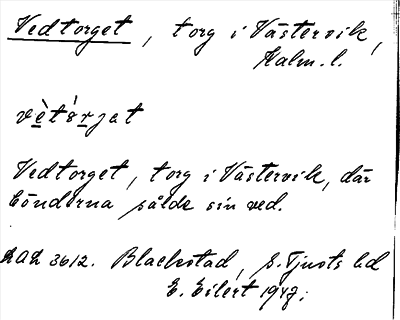 Vedtorget, torg i Västervik,
Kalm. l.
vètórjat
Vedtorget, torg i Västervik, där
bönderna sålde sin ved.
3612. Blackstad, S. Tjusts hd
E. Eilert 1947;